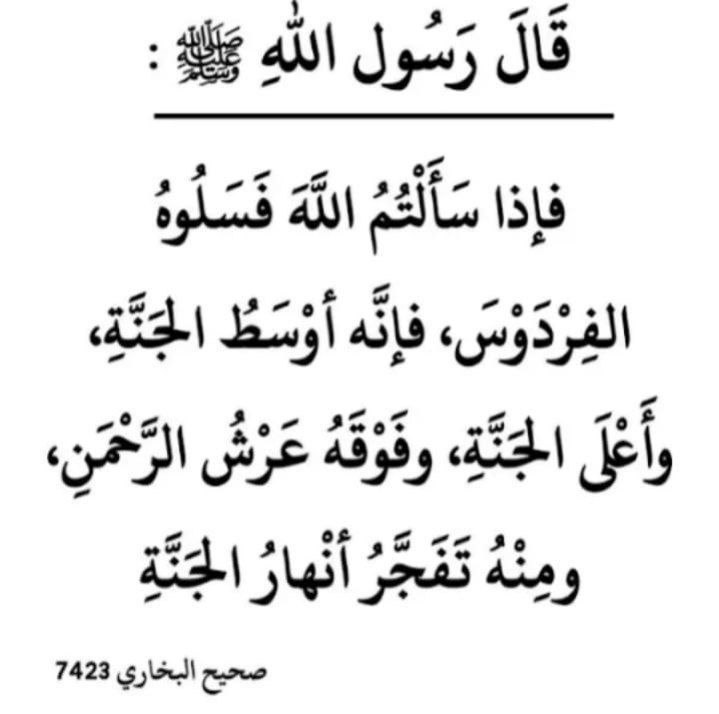 قَالَ رَسُول اللَّهِ ﷺ :
فإذا سَأَلْتُمُ اللَّهَ فَسَلُوهُ
الفِرْدَوْسَ، فإنَّه أوْسَطُ الجَنَّةِ،
وأَعْلَى الجَنَّةِ، وفَوْقَهُ عَرْشُ الرَّحْمَنِ،
ومِنْهُ تَفَجَّرُ أنْهارُ الجَنَّةِ
صحيح البخاري 7423